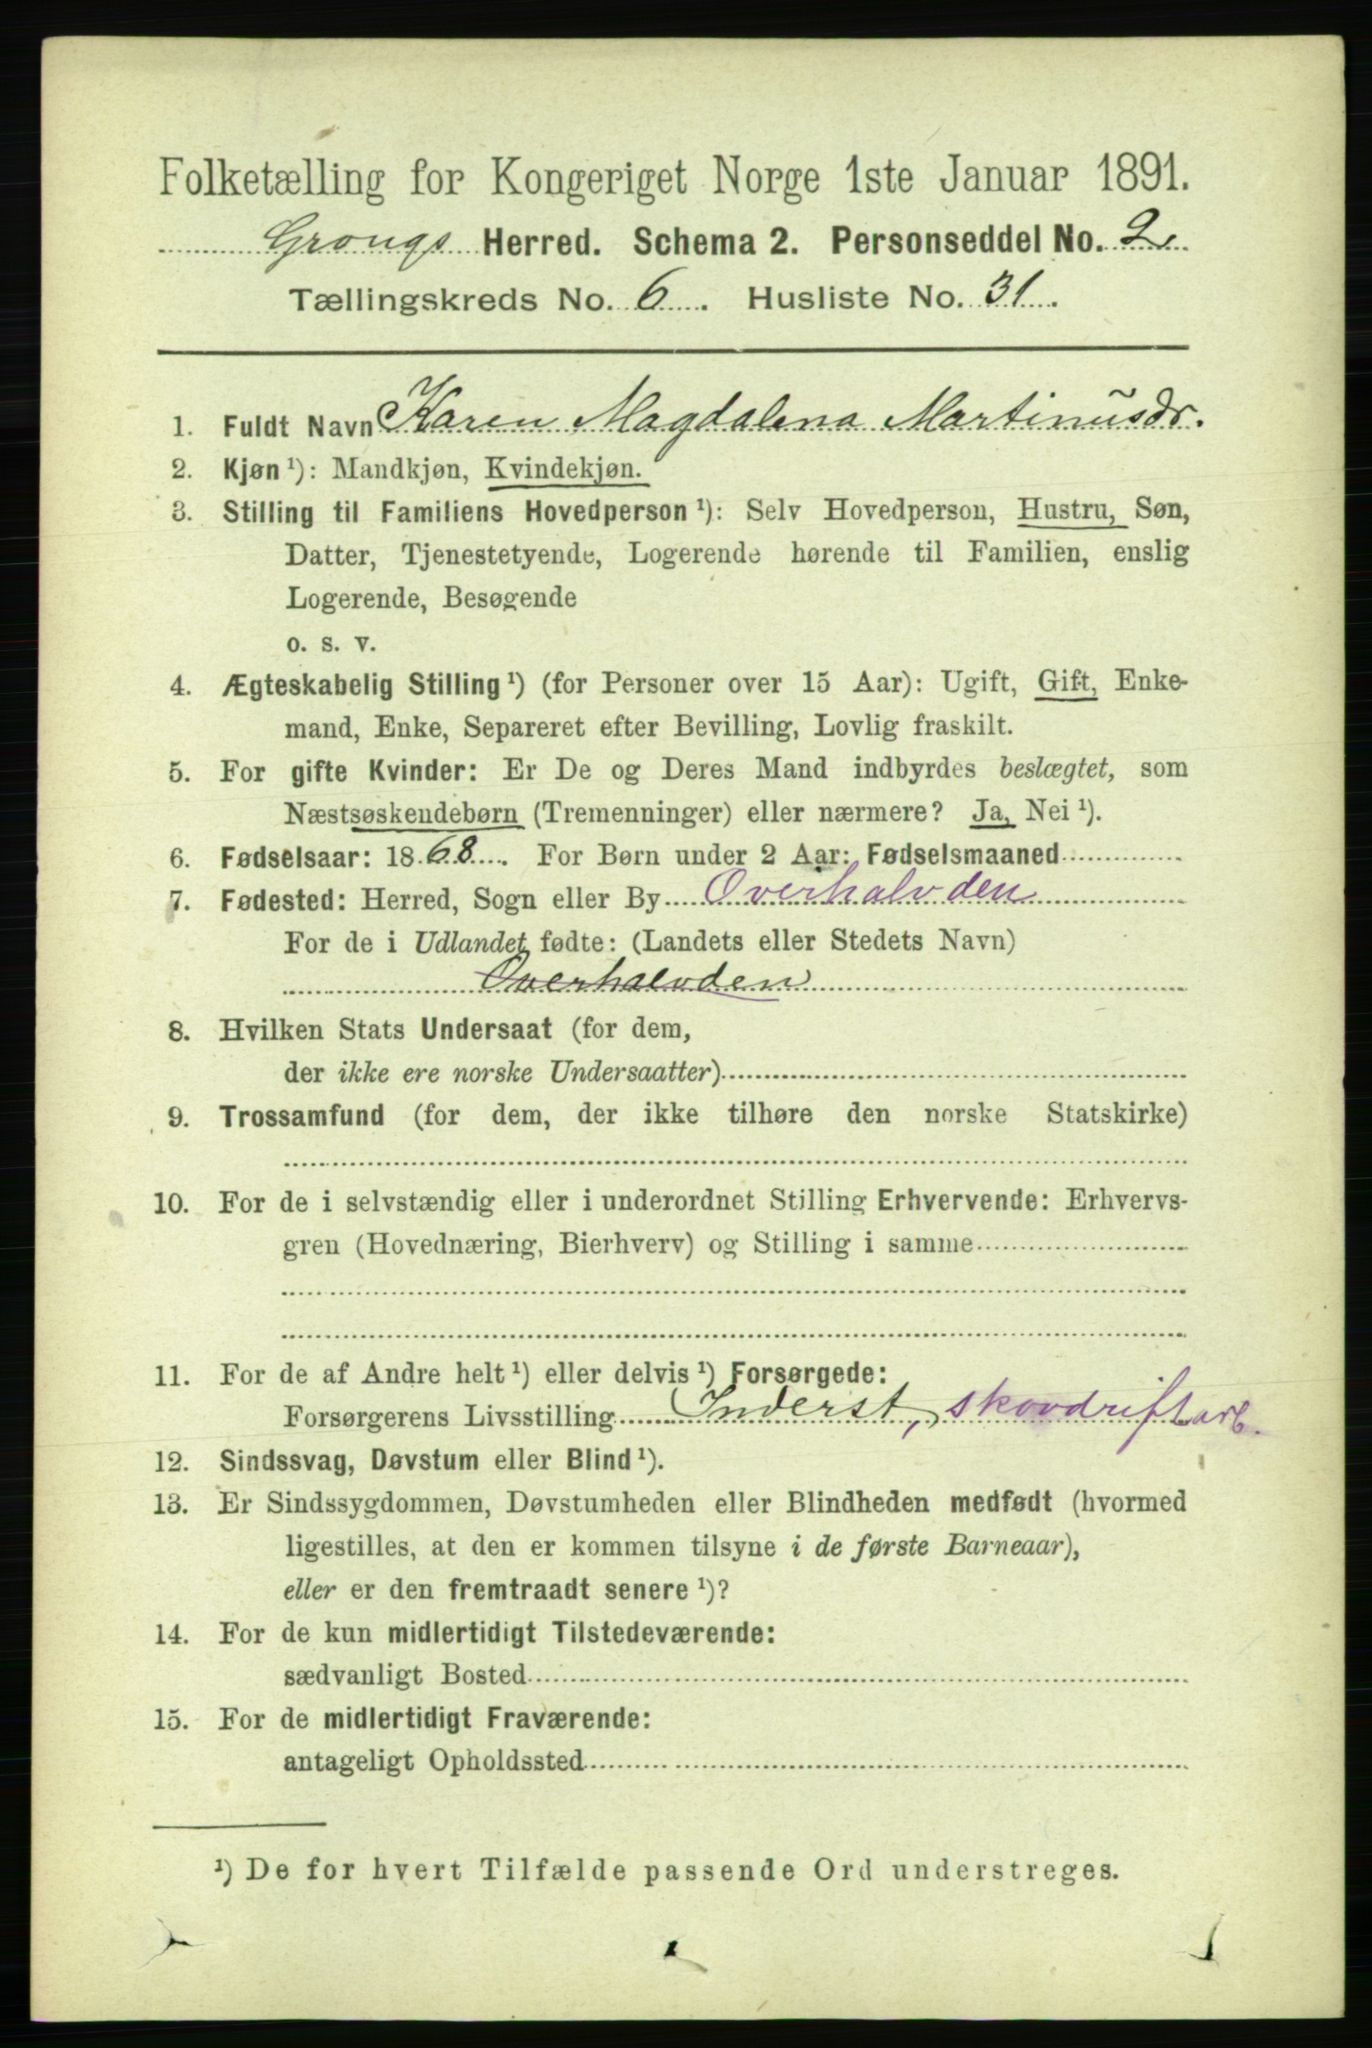 Folketælling for Kongeriget Norge 1ste Januar 1891.
Grongs Herred. Schema 2. Personseddel No. 2.
Tællingskreds No. 6. Husliste No. 31.
1. Fuldt Navn Karen Magdalena Martinusdr.
2. Kjøn ¹): Mandkjøn, Kvindekjøn.
3. Stilling til Familiens Hovedperson ¹): Selv Hovedperson, Hustru, Søn,
Datter, Tjenestetyende, Logerende hørende til Familien, enslig
Logerende, Besøgende
o. s. v.
4. Ægteskabelig Stilling ¹) (for Personer over 15 Aar): Ugift, Gift, Enke-
mand, Enke, Separeret efter Bevilling, Lovlig fraskilt.
5. For gifte Kvinder: Er De og Deres Mand indbyrdes beslægtet, som
Næstsøskendebørn (Tremenninger) eller nærmere? Ja, Nei ¹).
6. Fødselsaar: 1868. For Børn under 2 Aar: Fødselsmaaned
7. Fødested: Herred, Sogn eller By Overhalvden
For de i Udlandet fødte: (Landets eller Stedets Navn)
Overhalvden
8. Hvilken Stats Undersaat (for dem,
der ikke ere norske Undersaatter)
9. Trossamfund (for dem, der ikke tilhøre den norske Statskirke)
10. For de i selvstændig eller i underordnet Stilling Erhvervende: Erhvervs-
gren (Hovednæring, Bierhverv) og Stilling i samme
11. For de af Andre helt ¹) eller delvis ¹) Forsørgede:
Forsørgerens Livsstilling Inderst, skovdriftarb.
12. Sindssvag, Døvstum eller Blind ¹).
13. Er Sindssygdommen, Døvstumheden eller Blindheden medfødt (hvormed
ligestilles, at den er kommen tilsyne i de første Barneaar),
eller er den fremtraadt senere ¹)?
14. For de kun midlertidigt Tilstedeværende:
sædvanligt Bosted
15. For de midlertidigt Fraværende:
antageligt Opholdssted
¹) De for hvert Tilfælde passende Ord understreges.